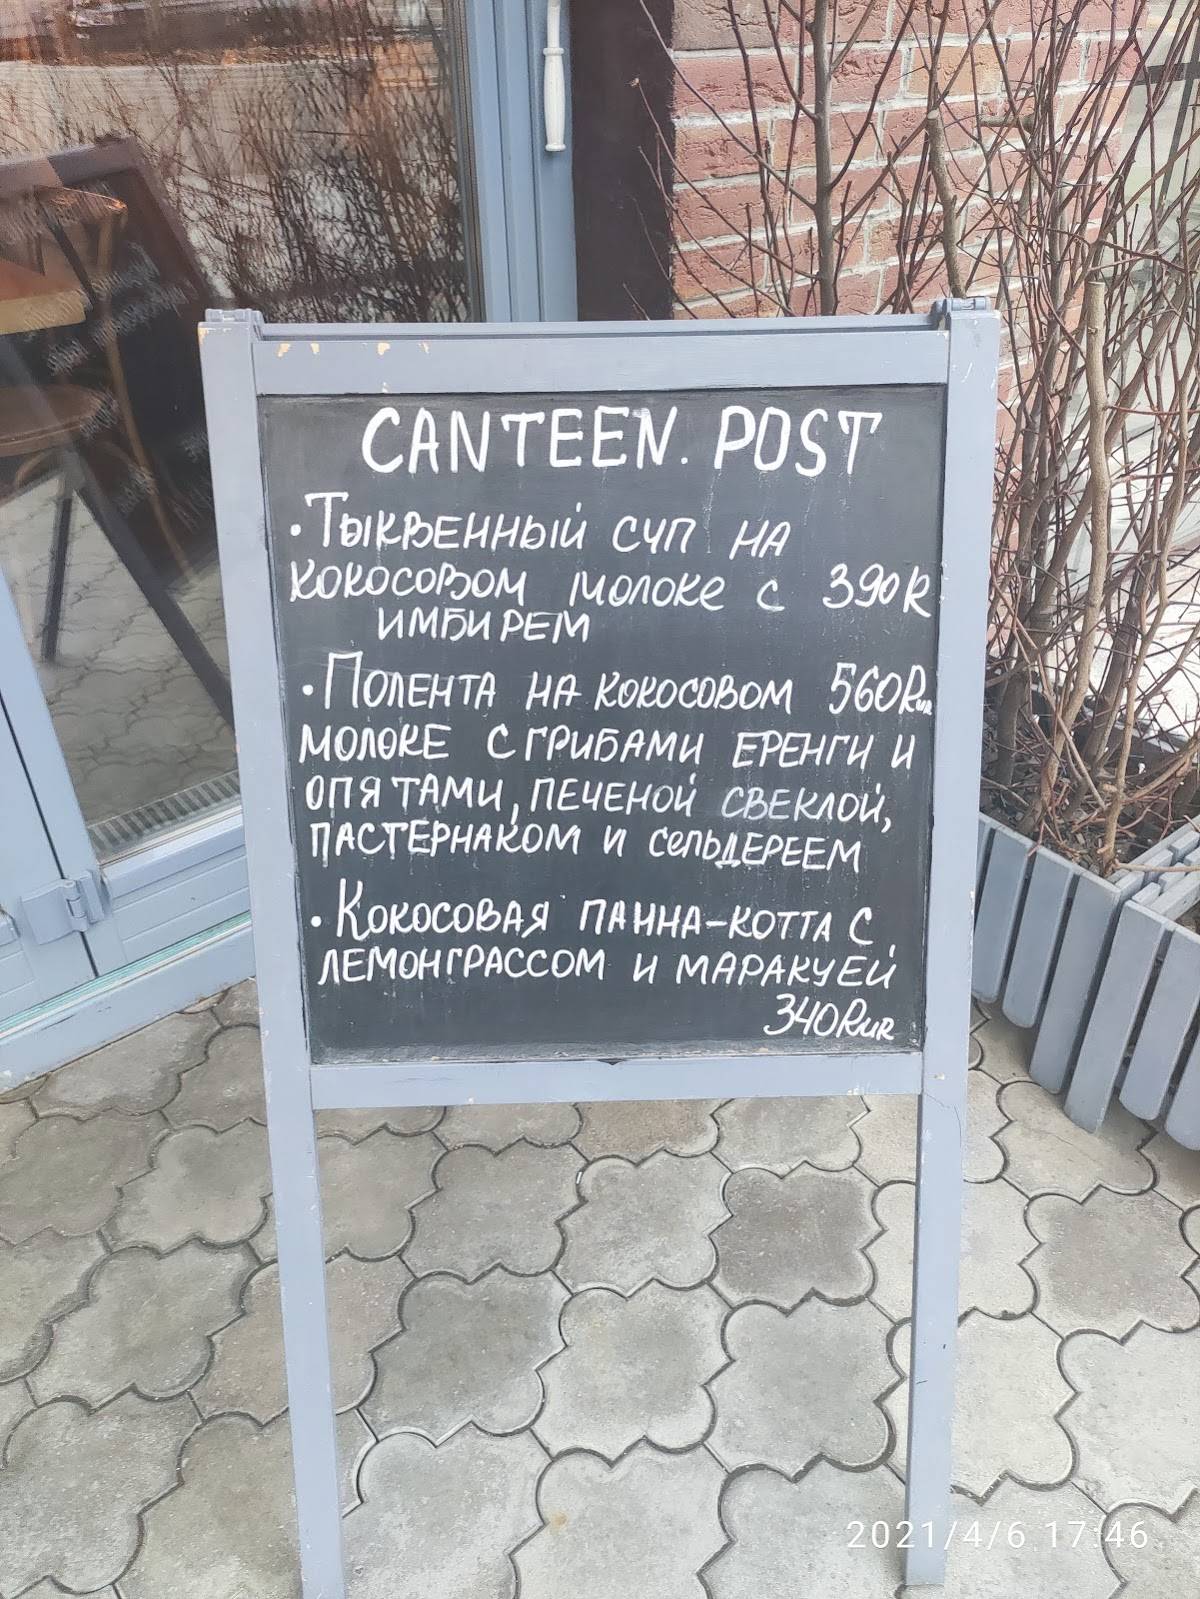 CANTEEN. POST
• Тыквенный суп на
кокосовом молоке с 390R
имбирем
• Полента на кокосовом 560Rur
молоке с грибами еренги и
опятами, печеной свеклой,
пастернаком и сельдереем
• Кокосовая панна-котта с
лемонграссом и маракуей
340Rur
2021/4/6 17:46